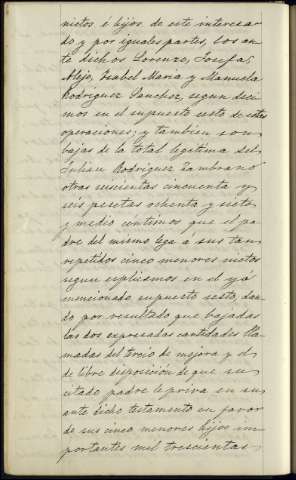 nietos é hijos de este interesa-
do y por iguales partes, los an-
te dichos Lorenzo, Josefa,
Alejo, Isabel Maria y Manuela
Rodriguez Sanchez, segun deci-
mos en el supuesto sesto de estas
operaciones; y tambien son
bajas de la total legitima del
Julian Rodriguez Zambrano
otras seiscientas cincuenta y
seis pesetas ochenta y siete
y medio centimos que el pa-
dre del mismo lega a sus tan
repetidos cinco menores nietos
segun esplicamos en el yá
mencionado supuesto sesto, dan-
do por resultado que bajadas
las dos espresadas cantidades lla-
madas del tercio de mejora y el
de libre disposición de que su
citado padre le priva en su
ante dicho testamento en favor
de sus cinco menores hijos im-
portantes mil trescientas